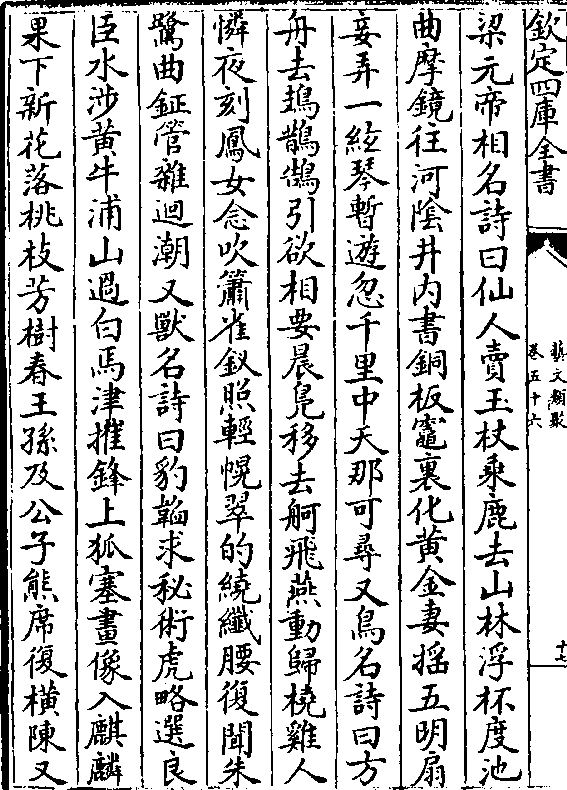 欽定四庫全書
藝文類聚
卷五十六
十七
梁元帝相名詩曰仙人賣玉杖乘鹿去山林浮杯度池
曲摩鏡往河陰井内書銅板竈裏化黃金妻揺五明扇
妾弄一絃琴暫遊忽千里中天那可尋又鳥名詩曰方
舟去鳷鵲鵠引欲相要晨鳬移去舸飛燕動歸橈雞人
憐夜刻鳳女念吹簫雀釵照輕幌翠的繞纖腰復聞朱
鷺曲鉦管雜迴潮又獸名詩曰豹韜求秘術虎略選良
臣水涉黃牛浦山過白馬津摧鋒上狐塞畫像入麒麟
果下新花落桃枝芳樹春王孫及公子熊席復横陳又